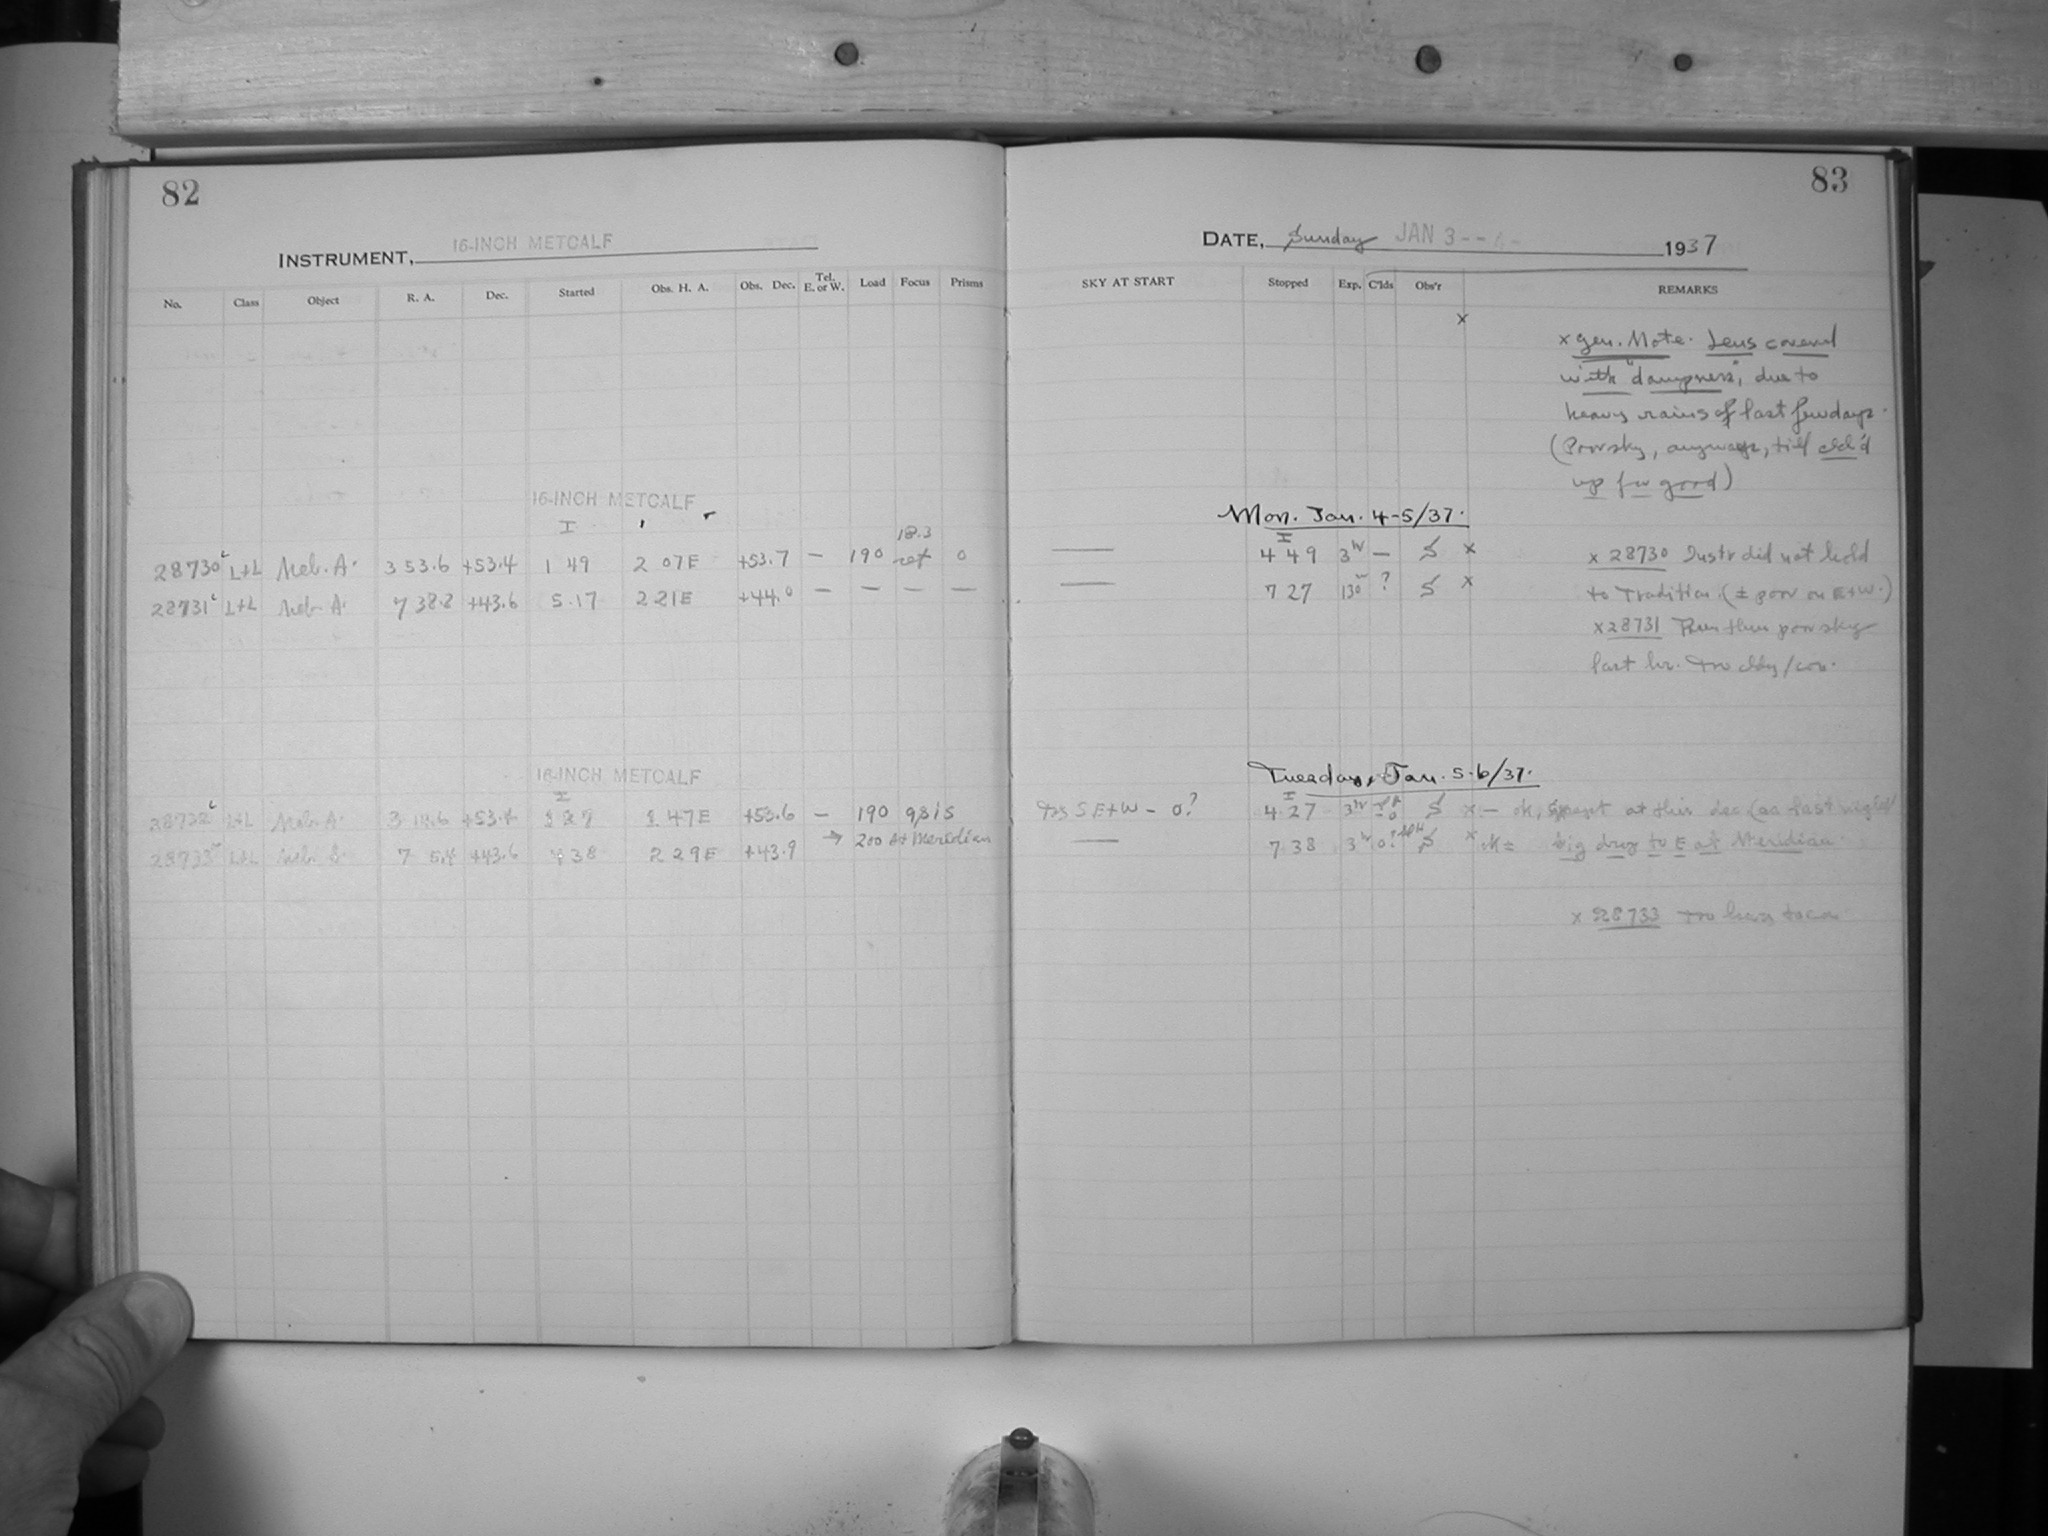 82
INSTRUMENT, 16-INCH METCALF
No. Class Object R. A. Dec. Started Obs. H. A. Obs. Dec. Tel. E. or W. Load Focus Prisms
16-INCH METCALF
I
18.3
28730 L+L Neb. A. 3 53.6 +53.4 1 49 2 07E +53.7 — 190 ref 0
28731 L+L Neb. A. 7 38.2 +43.6 5.17 2 21E +44.0 — — — —
16-INCH METCALF
I
28732 L+L Neb. A. +53.4 47E +53.6 — 190
28733 L+L Neb. 7 +43.6 38 2 29E +43.9 → 200 At Meridian
83
DATE, Sunday JAN 3--4- 1937
SKY AT START Stopped Exp. C'lds Obs'r REMARKS
x
x Gen. Note. Lens covered
with "dampness", due to
heavy rains of last few days.
(Poor sky, anyways, till cld'd
up for good)
Mon. Jan. 4-5/37.
I
— 4 49 3 — S x x 28730 Instr did not hold
— 7 27 130 ? S x to Tradition (± poor on E+W.)
x 28731 Thru thru poor sky
last hr. Too cldy/
Tuesday, Jan. 5-6/37.
I
S E+W - 0? 4 27 3 S x - ok, except at this dec (as last night
— 7 38 3 0? S x ok ± big drag to E at Meridian.
x 28733 Too